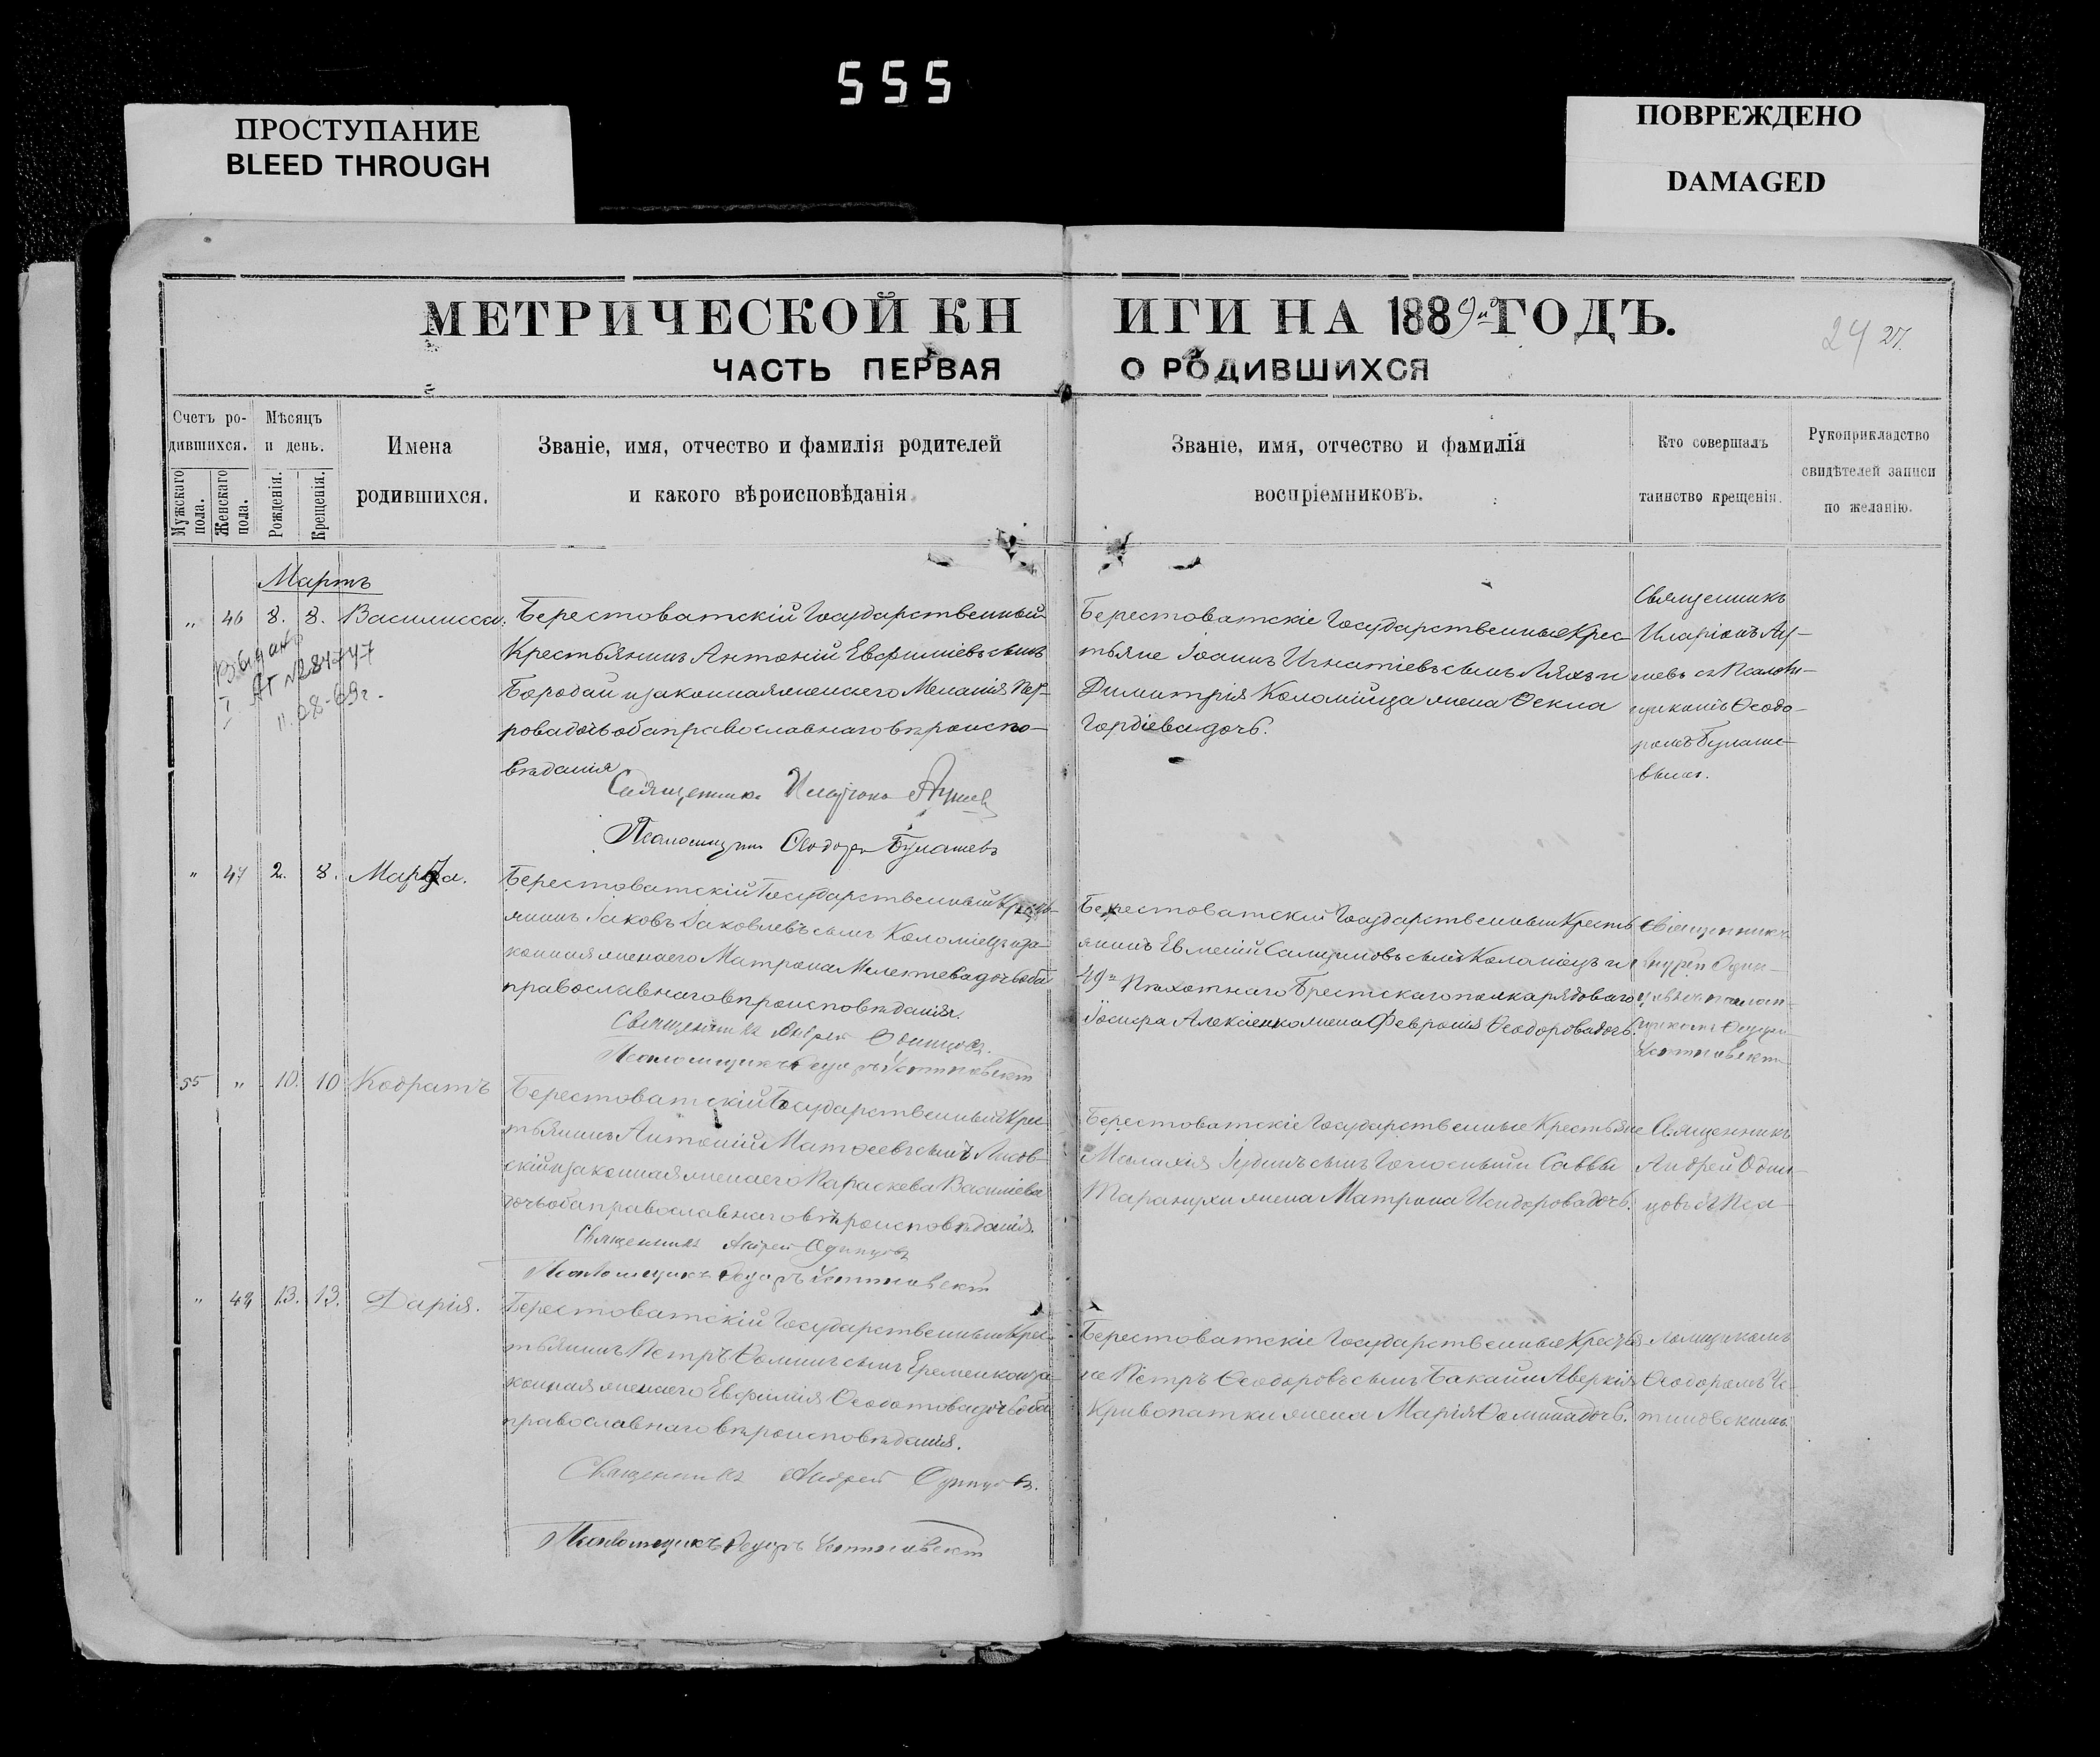 555
ПРОСТУПАНИЕ
BLEED THROUGH
ПОВРЕЖДЕНО
DAMAGED
МЕТРИЧЕСКОЙ КНИГИ НА 1889й ГОДЪ.
24 27.
ЧАСТЬ ПЕРВАЯ О РОДИВШИХСЯ
Счетъ ро-
дившихся.
Мужскаго пола.
Женскаго пола.
Мѣсяцъ
и день.
Рожденія.
Крещенія.
Имена
родившихся.
Званіе, имя, отчество и фамилія родителей
и какого вѣроисповѣданія.
Званіе, имя, отчество и фамилія
воспріемниковъ.
Кто совершалъ
таинство крещенія.
Рукоприкладство
свидѣтелей записи
по желанію.
Мартъ
" 46 8. 8. Василисса.
Берестоватскій Государственный
Крестьянинъ Антоній Евфиміевъ сынъ
Бородай и законная жена его Меланія Пет-
рова дочь оба православнаго вѣроиспо-
вѣданія
Священникъ
Псаломщикъ Ѳеодоръ Булашевъ
Берестоватскіе Государственные Крес-
тьяне Іоаннъ Игнатіевъ сынъ Ляхъ и
Димитрія Коломійца жена Ѳекла
Гордіева дочь.
Священникъ
Иларіонъ
съ Псалом-
щикомъ Ѳеодо-
ромъ Булаше-
вымъ.
Выдано
28747
" 47 2. 8. Марѳа.
Берестоватскій Государственный Кресть-
янинъ Іаковъ Іаковлевъ сынъ Коломіецъ и за-
конная жена его Матрона Мелетіева дочь оба
православнаго вѣроисповѣданія.
Священникъ Андрей Одинцовъ.
Псаломщикъ
Берестоватскій Государственный Кресть-
янинъ Евменій сынъ Коломіецъ и
49го Пѣхотнаго Брестскаго полка рядоваго
Іосифа Алексіенко жена Февронія Ѳеодорова дочь.
Священникъ
Андрей Один-
цовъ съ псалом-
щикомъ
55 " 10. 10 Кодратъ
Берестоватскій Государственный Крес-
тьянинъ Антоній Матѳеевъ сынъ Лисов-
скій и законная жена его Параскева Василіева
дочь оба православнаго вѣроисповѣданія.
Священникъ Андрей Одинцовъ
Псаломщикъ
Берестоватскіе Государственные Крестьяне
Малахія Іудинъ сынъ и Саввы
Таранухи жена Матрона Исидорова дочь.
Священникъ
Андрей Один-
цовъ съ Пса-
" 48 13. 13. Дарія.
Берестоватскій Государственный Крес-
тьянинъ Петръ Ѳоминъ сынъ Еременко и за-
конная жена его Евфимія Ѳеодотова дочь оба
православнаго вѣроисповѣданія.
Священникъ Андрей Одинцовъ.
Псаломщикъ
Берестоватскіе Государственные Крестья-
не Петръ Ѳеодоровъ сынъ Бакай и Аверкія
Кривопатки жена Марія Ѳомина дочь.
ломщикомъ
Ѳеодоромъ Ус-
тиновскимъ